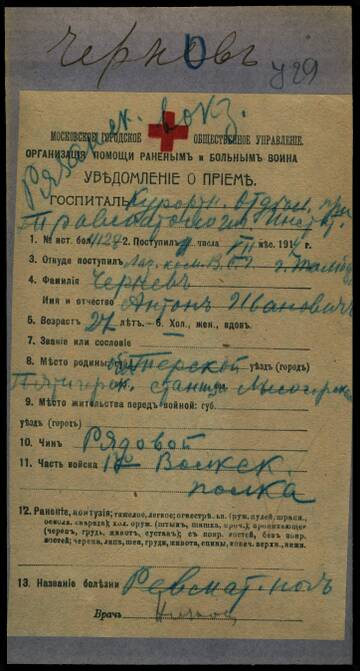 Черновъ
У29
Рязанск. вокз.
МОСКОВСКОЕ ГОРОДСКОЕ ОБЩЕСТВЕННОЕ УПРАВЛЕНІЕ.
ОРГАНИЗАЦІЯ ПОМОЩИ РАНЕНЫМЪ и БОЛЬНЫМЪ ВОИНА
УВѢДОМЛЕНІЕ О ПРІЕМѢ.
ГОСПИТАЛЬ Курортн. отдѣл. при
Травматологич. инст.
1. № ист. бол. 4124 2. Поступилъ числа VII мѣс. 191
3. Откуда поступилъ
4. Фамилія Черневъ
Имя и отчество Антонъ Ивановичъ
5. Возрастъ 27 лѣтъ.—6. Хол., жен., вдов.
7. Званіе или сословіе
8. Мѣсто родины: губ. Терской уѣздъ (городъ)
Пятигорск. станица Лысогорск
9. Мѣсто жительства передъ войной: губ.
уѣздъ (городъ)
10. Чинъ Рядовой
11. Часть войска 17 Волжск.
полка
12. Раненіе, контузія; тяжелое, легкое; огнестрѣ. ор. (пуля, шрапн.,
оскол. снаряда); хол. оруж. (штыкъ, шашка, проч.); проникающее
(черепъ, грудь, животъ, суставъ); съ повр. костей, безъ повр.
костей; черепа, лица, шеи, груди, живота, спины, конеч. верхн., нижн.
13. Названіе болѣзни Ревмат.
Врачъ